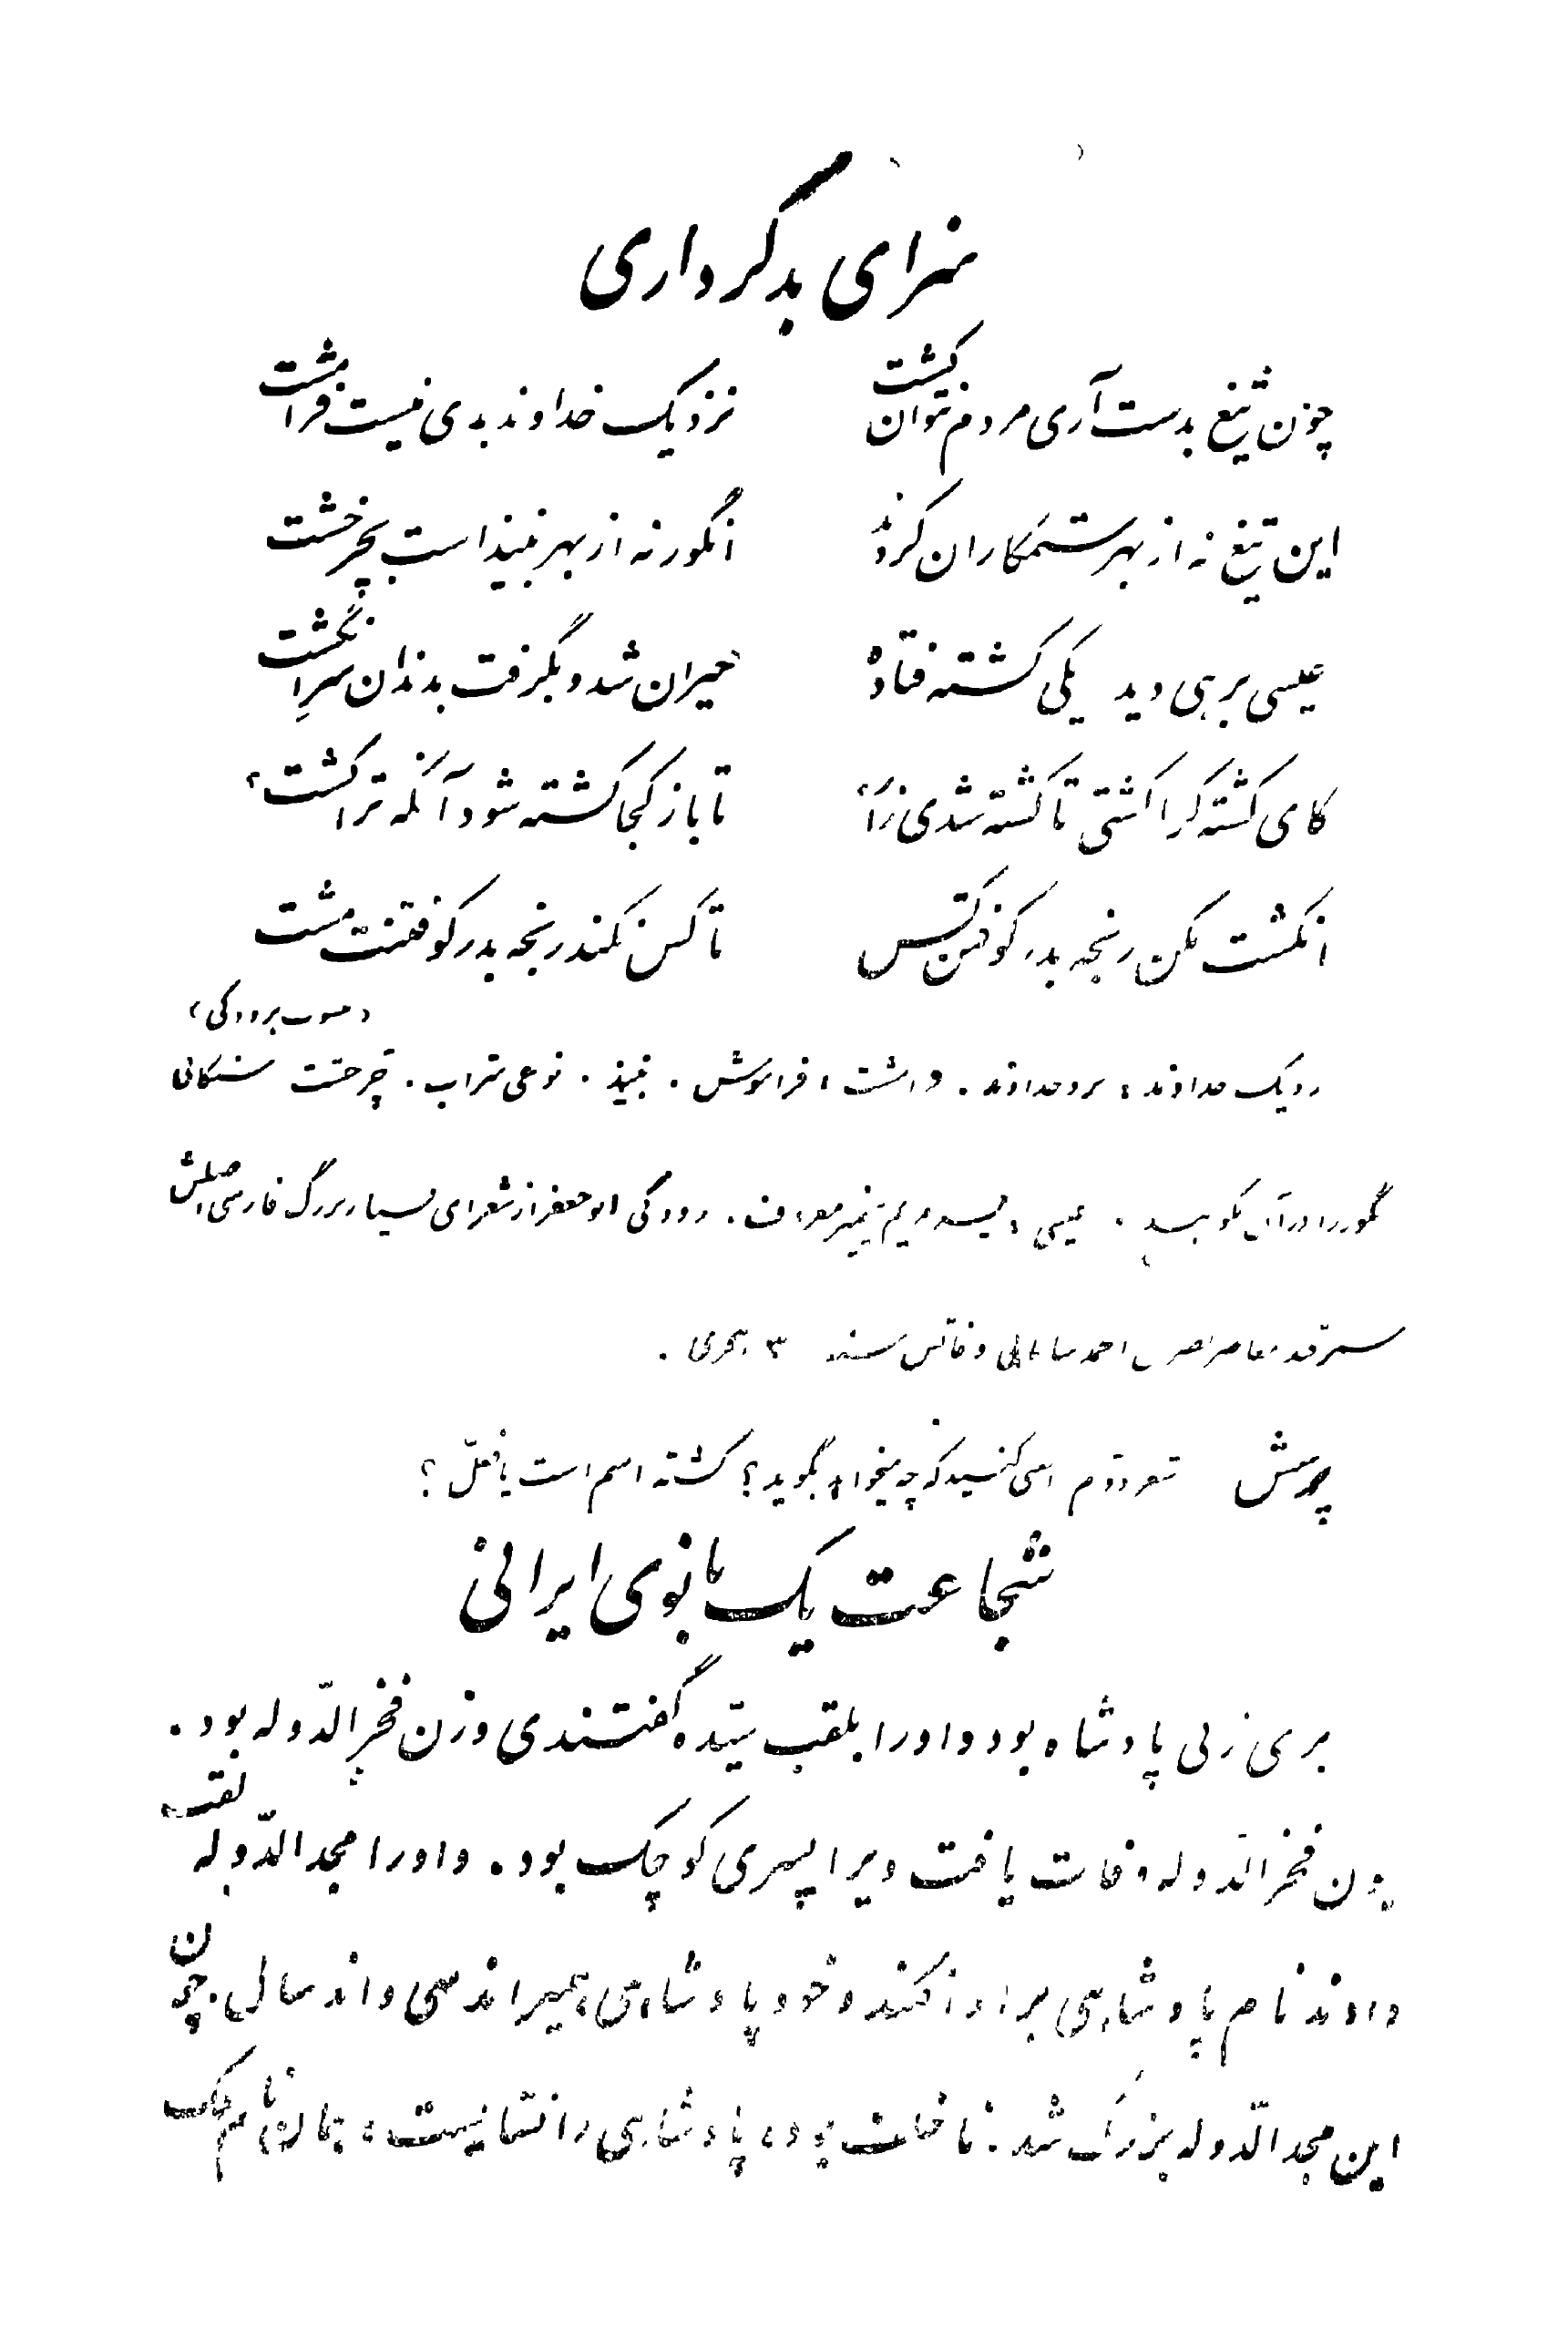 سزای بدکرداری
چون تیغ بدست آری مردم نتوان کشت نزدیک خداوند بدی نیست فرامشت
این تیغ نه از بهر ستمکاران کردند انگور نه از بهر نبیذ است بچرخشت
عیسی برهی دید یکی کشته فتاده حیران شد و بگرفت بدندان سر انگشت
کای کشته کرا کشتی تا کشته شدی زار، تا باز کجا کشته شود آنکه ترا کشت،
انگشت مکن رنجه بدر کوفتن کس تا کس نکند رنجه بدر کوفتنت مشت
(منسوب برودکی)
نزدیک خداوند، نزد خداوند. فرامشت، فراموش. نبیذ. نوعی شراب. چرخشت
انگور را در آن بکوبند. عیسی، پیغمبر معروف. رودکی ابوجعفر از شعرای بسیار بزرگ فارسی اصلش
سمرقند، معاصر نصر بن احمد سامانی وفاتش سنه هجری.
پرسش شعر دوم کنید که چه میخواهد بگوید؟ کشته اسم است یا فعل؟
شجاعت یک بانوی ایرانی
بری زنی پادشاه بود و او را بلقب سیّده گفتندی وزن فخر الدّوله بود.
چون فخر الدّوله وفات یافت ویرا پسری کوچک بود. و او را مجد الدّوله لقب
دادند نام پادشاهی بر او افکند و خود پادشاهی همیراند سی و اند سال. چون
این مجد الدّوله بزرگ شد. ناخلف بود، پادشاهی را نشایست،